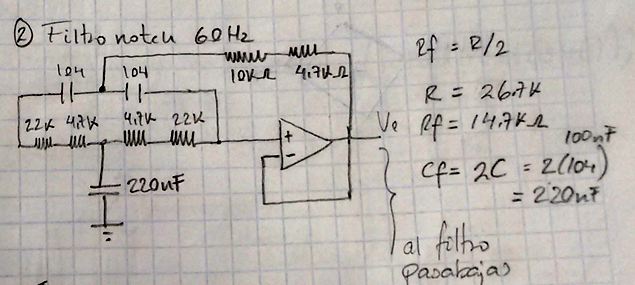 ② Filtro notch 60Hz
104
104
10KΩ
4.7KΩ
22K
4.7K
4.7K
22K
+
-
220nF
Ve
al filtro
pasabajas
Rf = R/2
R = 26.7K
Rf = 14.7KΩ
100nF
Cf = 2C = 2(104)
= 220nF